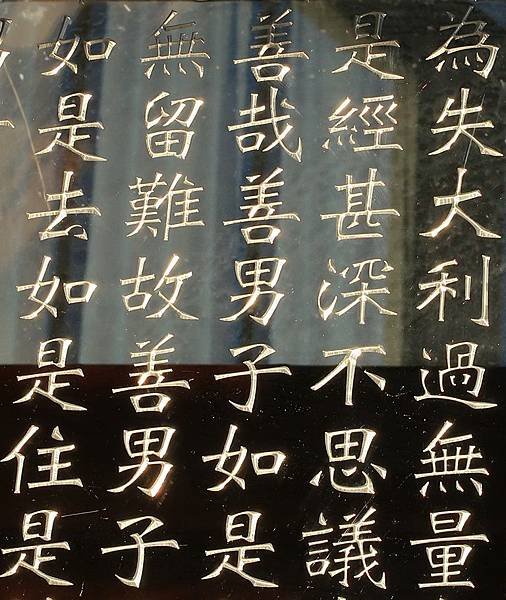 為失大利過無量
是經甚深不思議
善哉善男子如是
無留難故善男子
如是去如是住是